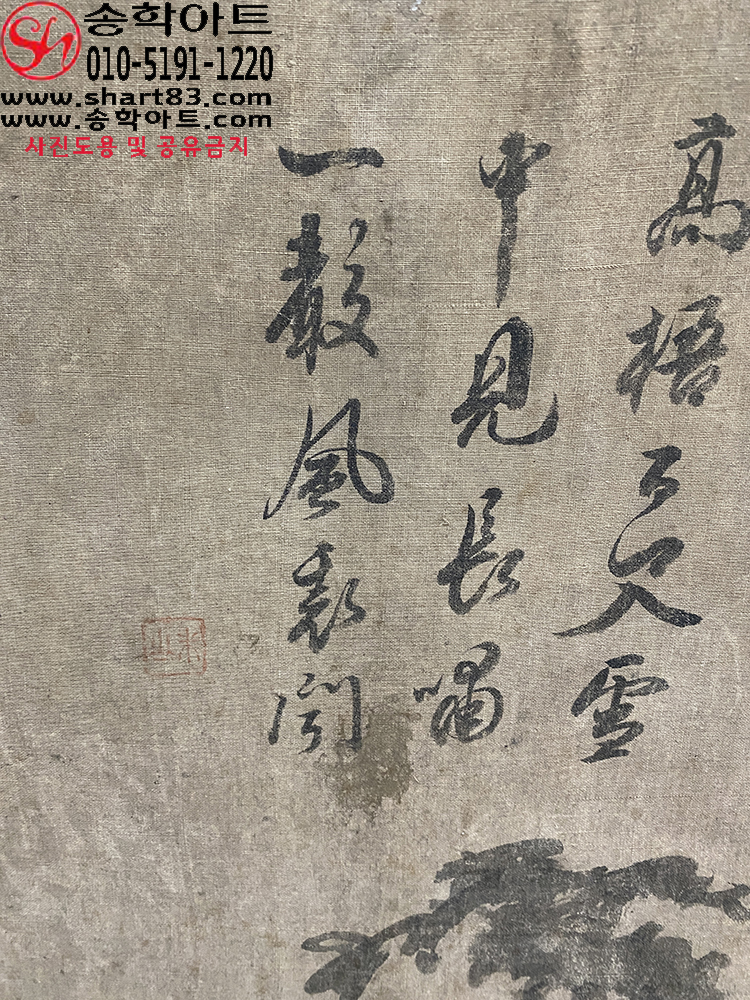 송학아트
010-5191-1220
www.shart83.com
www.송학아트.com
사진도용 및 공유금지
高梧雲
中見長嘯
一聲風聞